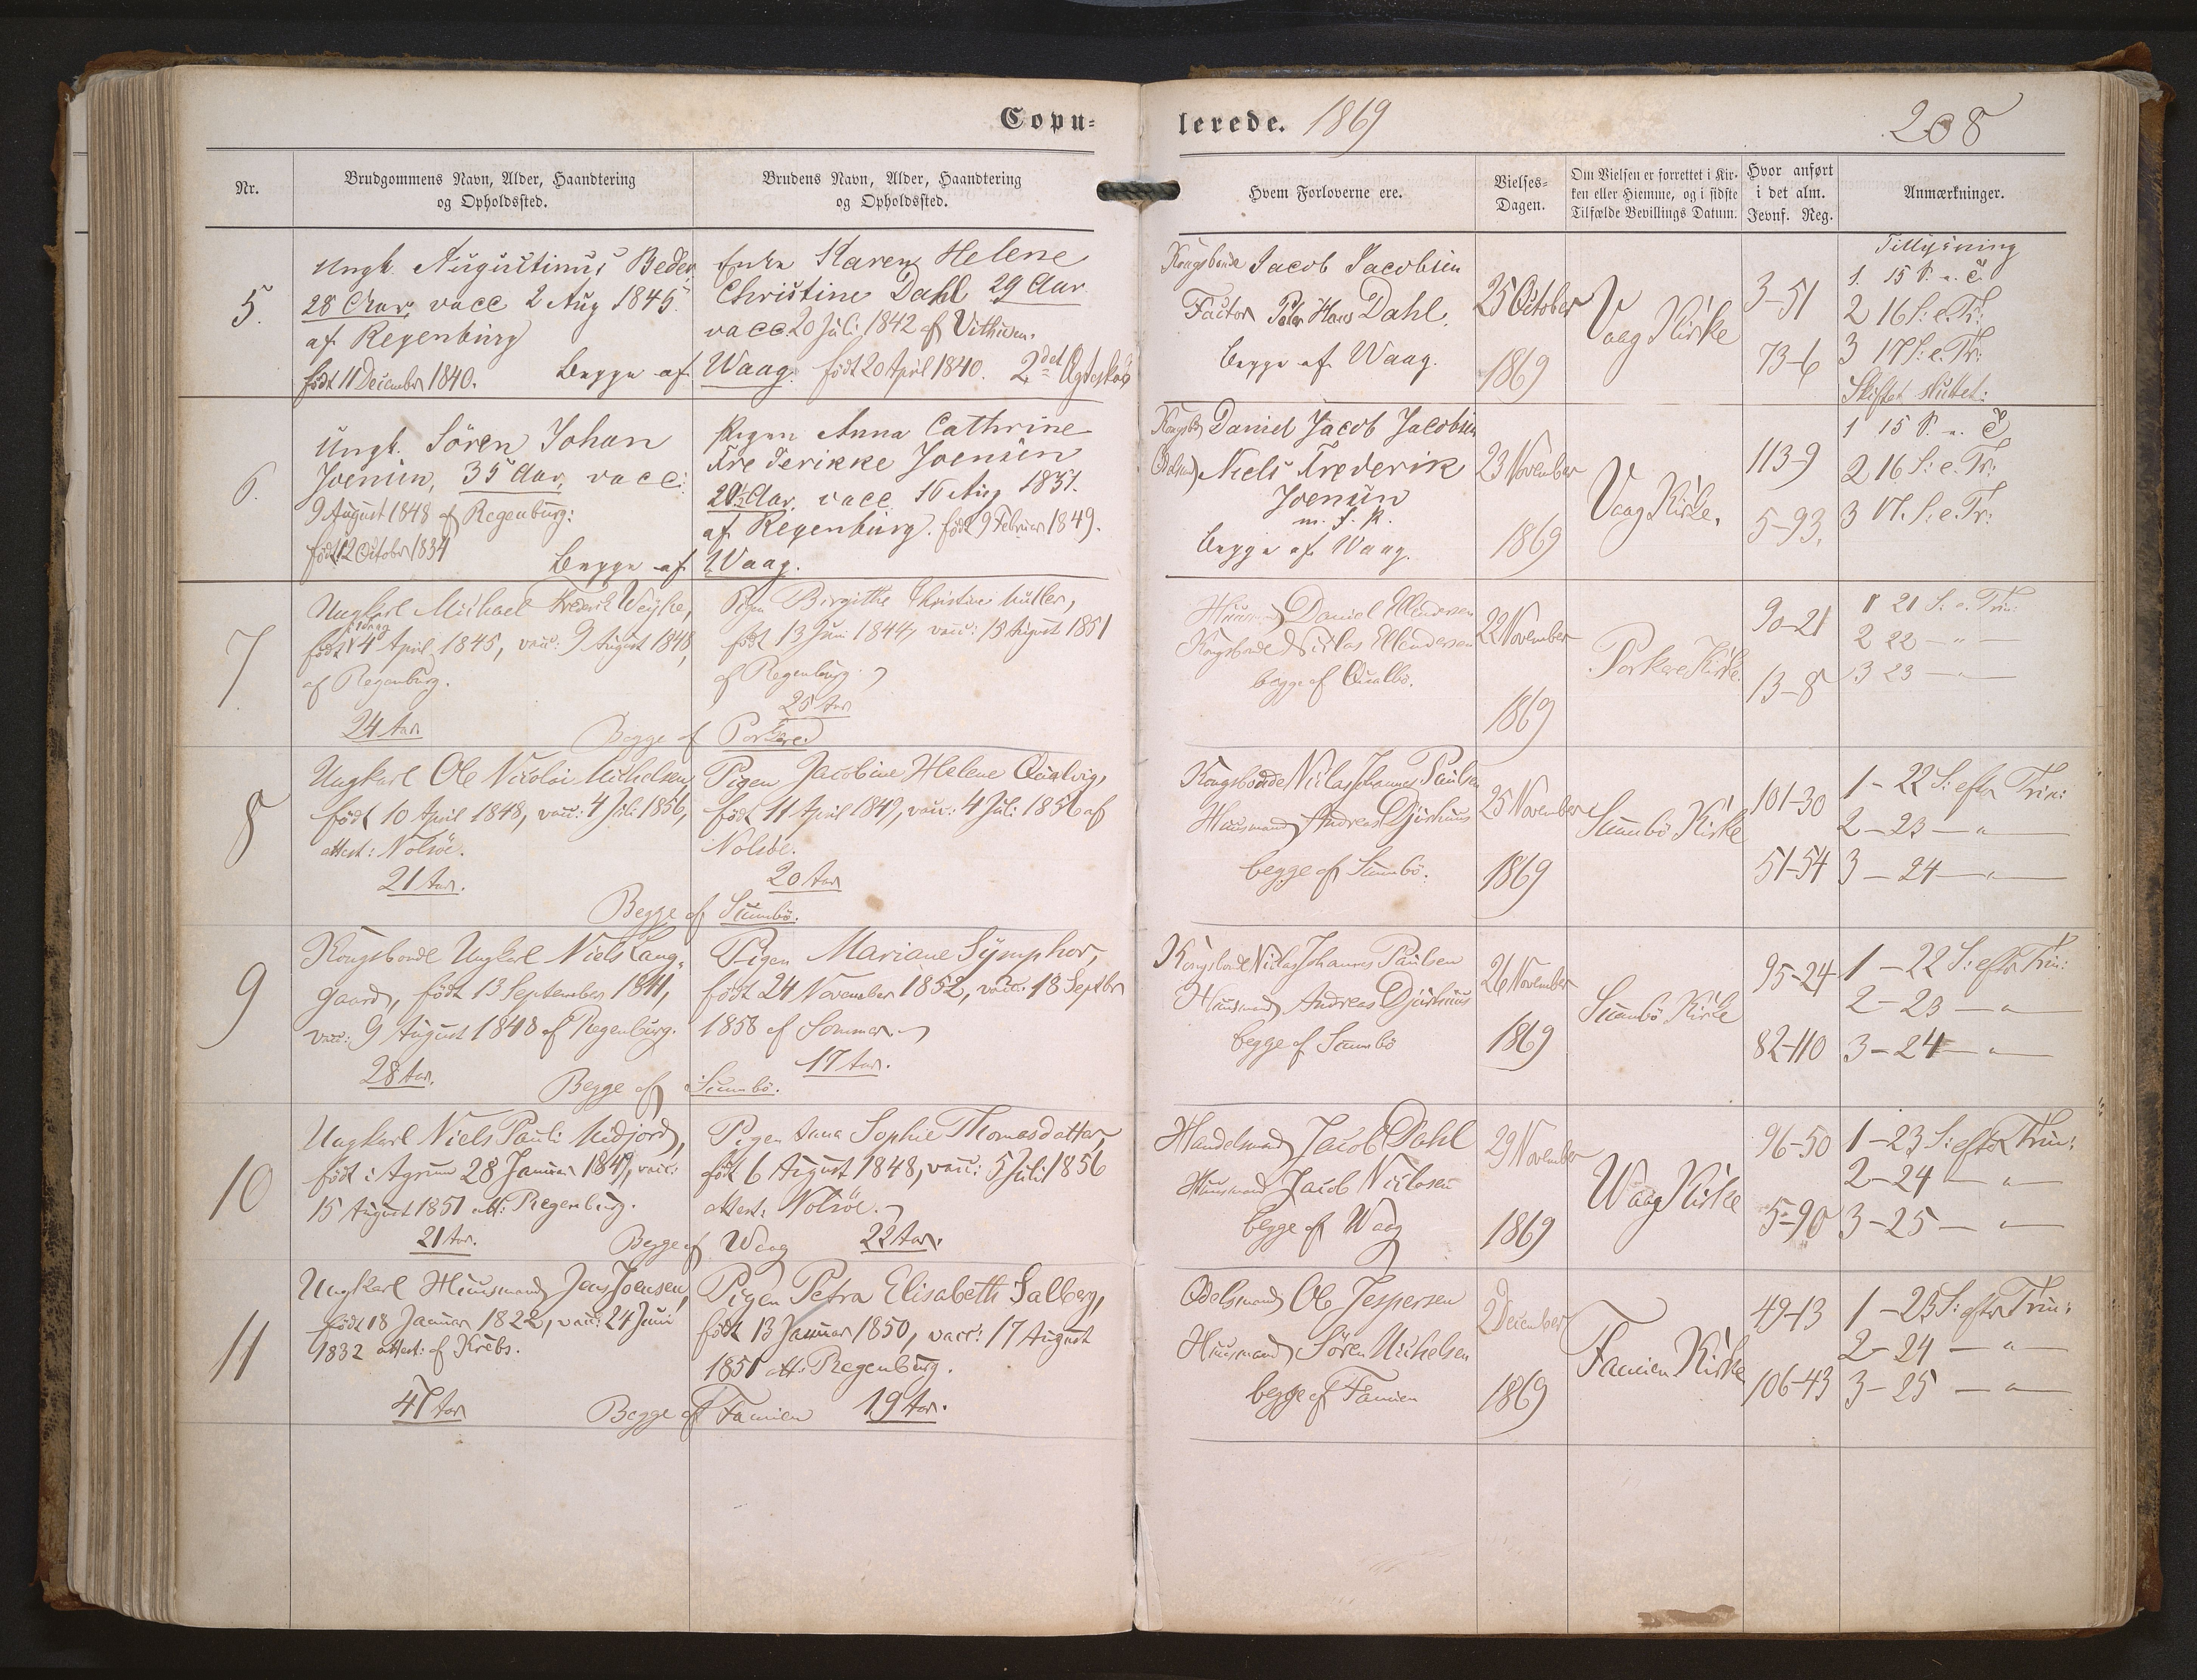 Copu-
lerede. 1869
208
Nr.
Brudgommens Navn, Alder, Haandtering
og Opholdssted.
Brudens Navn, Alder, Haandtering
og Opholdssted.
Hvem Forloverne ere.
Vielses-
Dagen.
Om Vielsen er forrettet i Kir-
ken eller Hiemme, og i sidste
Tilfælde Bevillings Datum.
Hvor anført
i det alm.
Jevnf. Reg.
Anmærkninger.
5.
Ungk. Augustinus Beder
28 Aar, vacc 2 Aug 1845.
af Regenburg
født 11 December 1840. Begge af
Enke Karen Helene
Christine Dahl 29 Aar
vacc 20 Juli 1842 af
Waag. født 20 April 1840. 2det
Kongsbonde Jacob Jacobsen
Factor Hans Dahl.
begge af Waag.
25 October
1869
Vaag Kirke
3-51
73-6
Tillysning
1. 15 S. e. T.
2 16 S: e. Tr:
3 17 S: e. Tr:
Skiftet sluttet:
6.
Ungk. Sören Johan
Joensen, 35 Aar, vacc:
9 August 1848 af Regenburg:
født 12 October 1834
Begge af
Pigen Anna Cathrine
Frederikke Joensen
20½ Aar, vacc. 16 Aug 1851.
af Regenburg. født 9 Februar 1849.
Waag.
Daniel Jacob Jacobsen
Niels Frederik
Joensen
m. f. P.
begge af Waag.
23 November
1869
Vaag Kirke.
113-9
5-93.
1 15 S. e. T.
2 16 S: e. Tr:
3 17. S: e. Tr:
7
Ungkarl Michael Frederik Weyhe,
født 4 April 1845, vacc: 9 August 1848,
af Regenburg.
24 Aar
Begge af
Pigen Birgithe Christine Müller,
født 13 Juni 1844, vacc: 15 August 1851
af Regenburg
25 Aar
Porkere
Daniel Mendersen
Kongsbonde Niclas Mendersen
begge af Qualbö.
22 November
1869
Porkere Kirke.
90-21
13-8
1 21 S: e. Trin:
2 22 — " —
3 23 — " —
8
Ungkarl Ole Nicolai Michelsen,
født 10 April 1848, vacc: 4 Juli 1856,
attest: Nolsöe.
21 Aar.
Begge af
Pigen Jacobine Helene Qualvig,
født 11 April 1849, vacc: 4 Juli 1856 af
Nolsöe.
20 Aar
Sumbö.
Kongsbonde Niclas Johannes Paulsen
Huusmand Andreas Djurhuus
begge af Sumbö.
25 November
1869
Sumbö Kirke
101-30
51-54
1 - 22 S: efter Trin:
2 - 23 — " —
3 - 24 — " —
9
Kongsbonde Ungkarl Niels Lang-
gaard, født 13 September 1841,
vacc: 9 August 1848 af Regenburg.
28 Aar.
Begge af
Pigen Mariane Symphor,
født 24 November 1852, vacc: 13 Septbr
1858 af Sommer
17 Aar.
Sumbö.
Kongsbonde Niclas Johannes Paulsen
Huusmand Andreas Djurhuus
begge af Sumbö
26 November
1869
Sumbö Kirke
95-24
82-110
1 - 22 S: efter Trin:
2 - 23 — " —
3 - 24 — " —
10
Ungkarl Niels Pauli Midjord,
født i Agrum 28 Januar 1849, vacc:
15 August 1851 att: Regenburg.
21 Aar.
Begge af
Pigen Anna Sophie Thomasdatter,
født 6 August 1848, vacc: 5 Juli 1856
attest: Nolsöe.
Waag 22 Aar.
Handelsmand Jacob Dahl
Huusmand Jacob Niclasen
begge af Waag
29 November
1869
Waag Kirke
96-50
5-90
1 - 23 S: efter Trin:
2 - 24 — " —
3 - 25 — " —
11
Ungkarl Huusmand Jens Joensen,
født 18 Januar 1822, vacc: 24 Juni
1832 attest: af Krebs.
47 Aar
Begge af
Pigen Petra Elisabeth Salberg,
født 13 Januar 1850, vacc: 17 August
1851 att: Regenburg.
Famien 19 Aar.
Odelsmand Ole Jespersen
Huusmand Sören Michelsen
begge af Famien
2 December
1869
Famien Kirke
49-13
106-43
1 - 23 S: efter Trin:
2 - 24 — " —
3 - 25 — " —